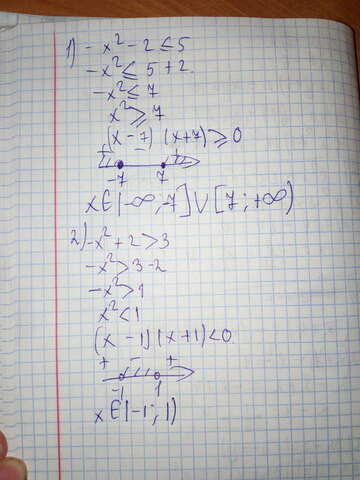 1) - x² - 2 ≤ 5
-x² ≤ 5 + 2
-x² ≤ 7
x² ≥ 7
(x - 7) (x+7) ≥ 0
+ - +
-7 7
x ∈ (-∞; -7] ∪ [7; +∞)
2) -x² + 2 > 3
-x² > 3 - 2
-x² > 1
x² < 1
(x - 1) (x + 1) < 0
+ - +
-1 1
x ∈ (-1; 1)